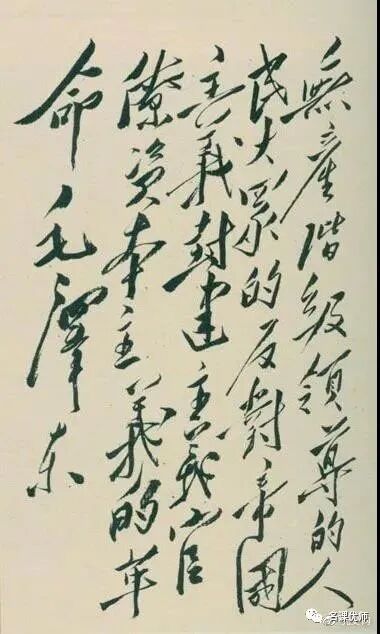 無產階級領導的人
民大眾的反對帝國
主義封建主義官
僚資本主義的革
命 毛澤东
名课优师